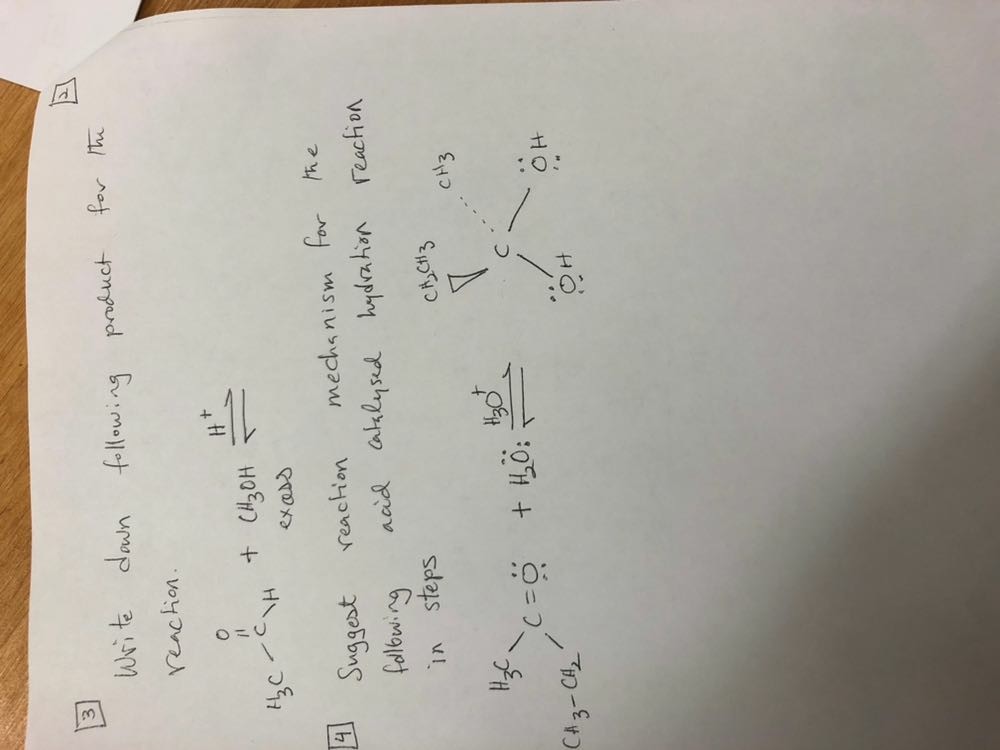 2
3 Write down following product for the
reaction.
O
H₃C – C \ H + CH₃OH H⁺ ⇌
excess
4 Suggest reaction mechanism for the
following acid catalysed hydration reaction
in steps
H₃C CH₂CH₃ CH₃
C=Ö: + H₂Ö: H₃O⁺ ⇌ C
CH₃–CH₂ :ÖH ÖH